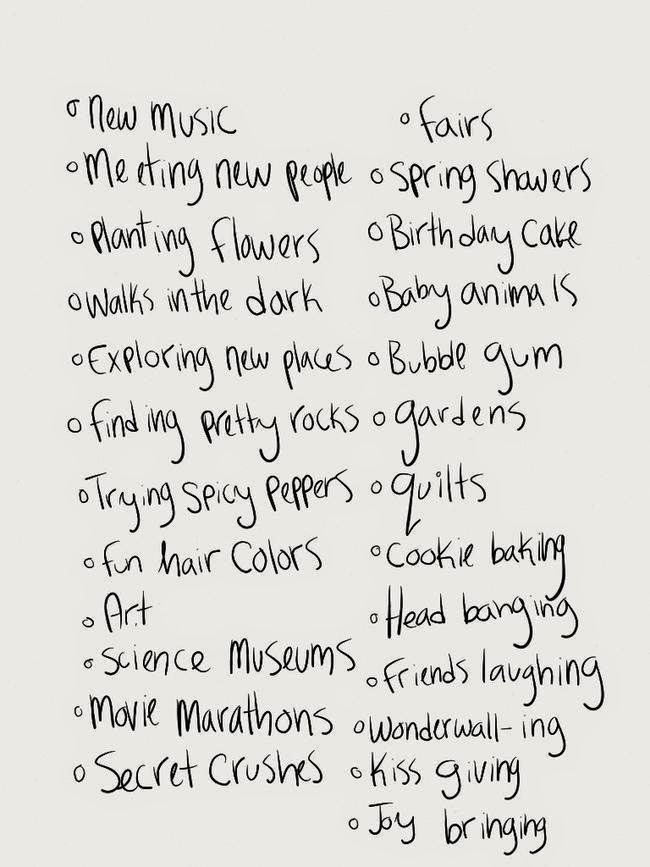 New Music
Meeting new people
Planting flowers
Walks in the dark
Exploring new places
finding pretty rocks
Trying spicy peppers
fun hair colors
Art
Science Museums
Movie Marathons
Secret Crushes
fairs
spring showers
Birthday cake
Baby animals
Bubble gum
gardens
quilts
Cookie baking
Head banging
friends laughing
Wonderwall-ing
Kiss giving
Joy bringing